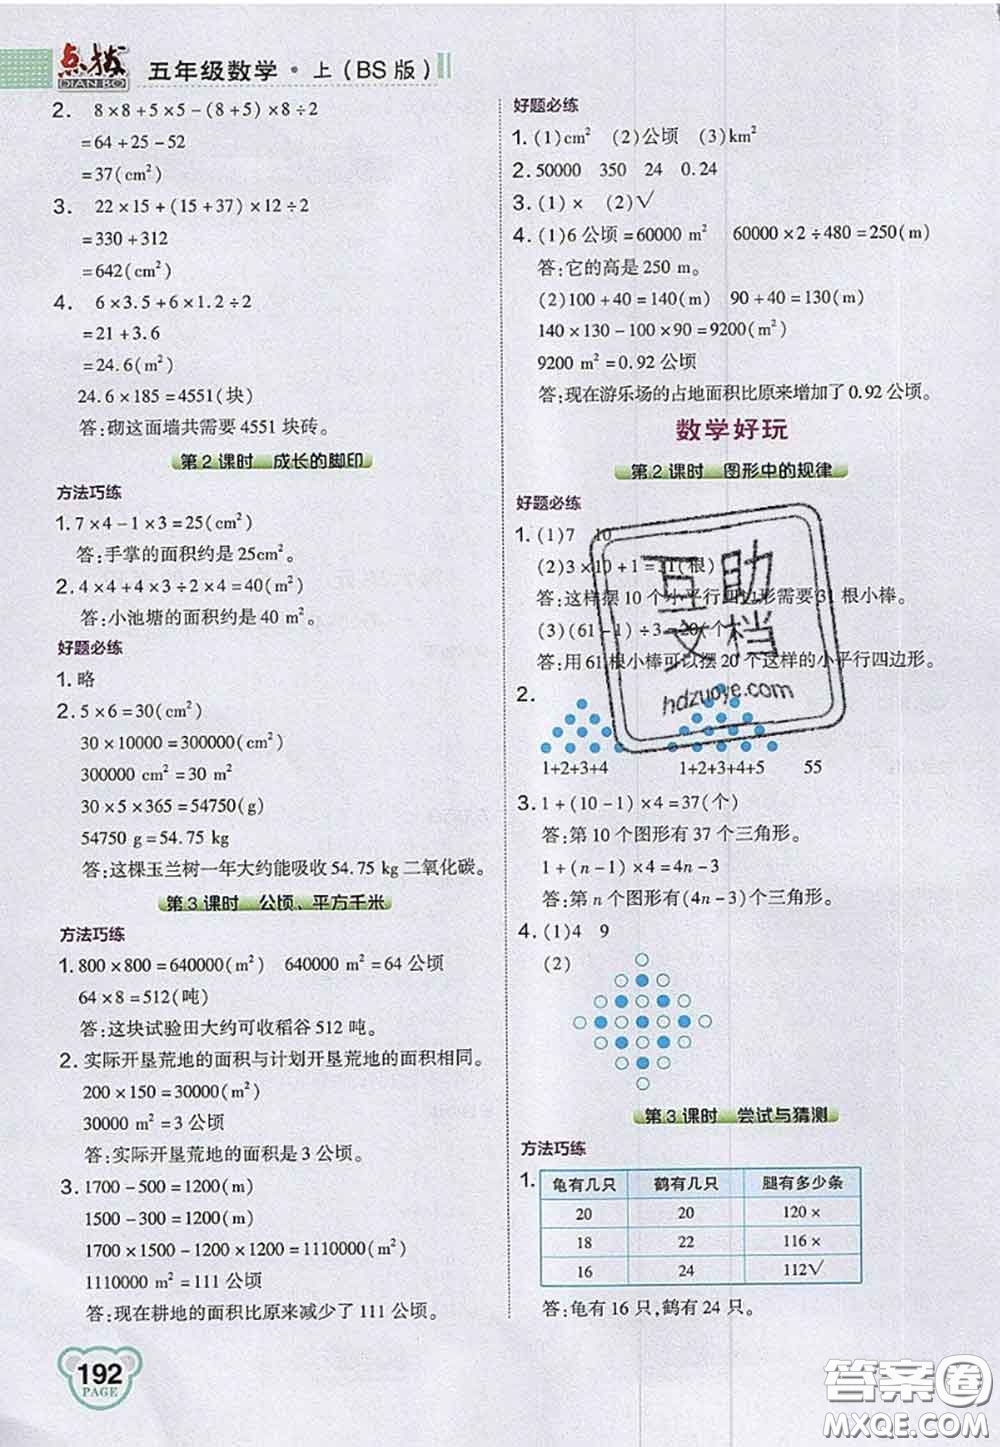 点拨
DIAN BO
五年级数学·上(BS版)
2. 8×8+5×5-(8+5)×8÷2
=64+25-52
=37(cm²)
3. 22×15+(15+37)×12÷2
=330+312
=642(cm²)
4. 6×3.5+6×1.2÷2
=21+3.6
=24.6(m²)
24.6×185=4551(块)
答:砌这面墙共需要4551块砖。
第2课时 成长的脚印
方法巧练
1. 7×4-1×3=25(cm²)
答:手掌的面积约是25cm²。
2. 4×4+4×3÷2×4=40(m²)
答:小池塘的面积约是40 m²。
好题必练
1. 略
2. 5×6=30(cm²)
30×10000=300000(cm²)
300000 cm²=30 m²
30×5×365=54750(g)
54750 g=54.75 kg
答:这棵玉兰树一年大约能吸收54.75 kg二氧化碳。
第3课时 公顷、平方千米
方法巧练
1. 800×800=640000(m²) 640000 m²=64公顷
64×8=512(吨)
答:这块试验田大约可收稻谷512吨。
2. 实际开垦荒地的面积与计划开垦荒地的面积相同。
200×150=30000(m²)
30000 m²=3公顷
答:实际开垦荒地的面积是3公顷。
3. 1700-500=1200(m)
1500-300=1200(m)
1700×1500-1200×1200=1110000(m²)
1110000 m²=111公顷
答:现在耕地的面积比原来减少了111公顷。
192
PAGE
好题必练
1. (1)cm² (2)公顷 (3)km²
2. 50000 350 24 0.24
3. (1)× (2)√
4. (1)6公顷=60000 m² 60000×2÷480=250(m)
答:它的高是250 m。
(2)100+40=140(m) 90+40=130(m)
140×130-100×90=9200(m²)
9200 m²=0.92公顷
答:现在游乐场的占地面积比原来增加了0.92公顷。
数学好玩
第2课时 图形中的规律
好题必练
1. (1)7 10
(2)3×10+1=31(根)
答:这样摆10个小平行四边形需要31根小棒。
(3)(61-1)÷3=20(个)
答:用61根小棒可以摆20个这样的小平行四边形。
2.
1+2+3+4 1+2+3+4+5 55
3. 1+(10-1)×4=37(个)
答:第10个图形有37个三角形。
1+(n-1)×4=4n-3
答:第n个图形有(4n-3)个三角形。
4. (1)4 9
(2)
第3课时 尝试与猜测
方法巧练
1.
龟有几只 鹤有几只 腿有多少条
20 20 120×
18 22 116×
16 24 112√
答:龟有16只,鹤有24只。
互助文档
hdzuoye.com
答案圈
MXQE.COM